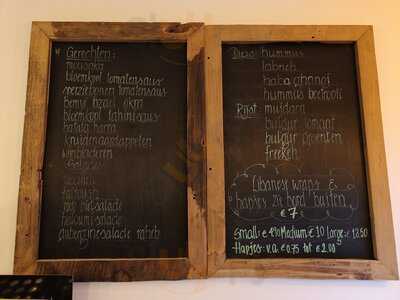 Gerechten:
moussaka
bloemkool tomatensaus
sperziebonen tomatensaus
bloemkool tahinisaus
batata harra
kruidenaardappelen
wijnbladeren
Salades
fattoush
halloumi salade
aubergine salade raheb
Dips: hummus
labneh
baba ghanoj
hummus beetroot
Rijst: mujdara
bulgur tomaat
bulgur groenten
freekeh
Libanese wraps &
hapjes zie bord buiten
€7
Small: € Medium € 10 large: € 12.50
Hapjes: v.a. € 0.75 tot € 2.00